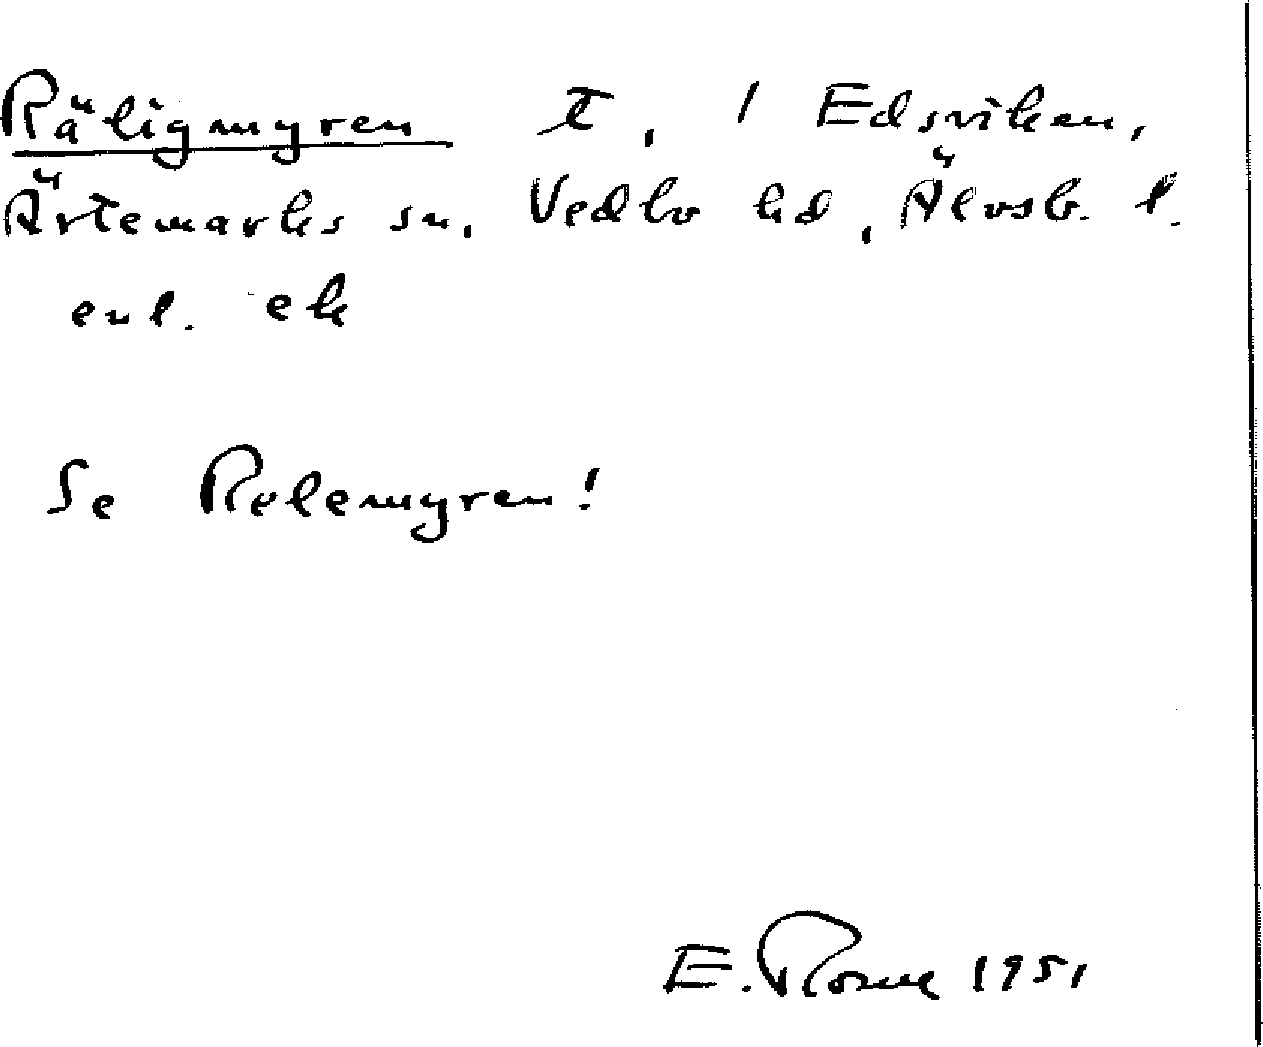 Räligmyren t, 1 Edsviken,
Ärtemarks sn, Vedbo hd, Älvsb. l.
enl. ek
Se Relemyren!
E. Rosne 1951